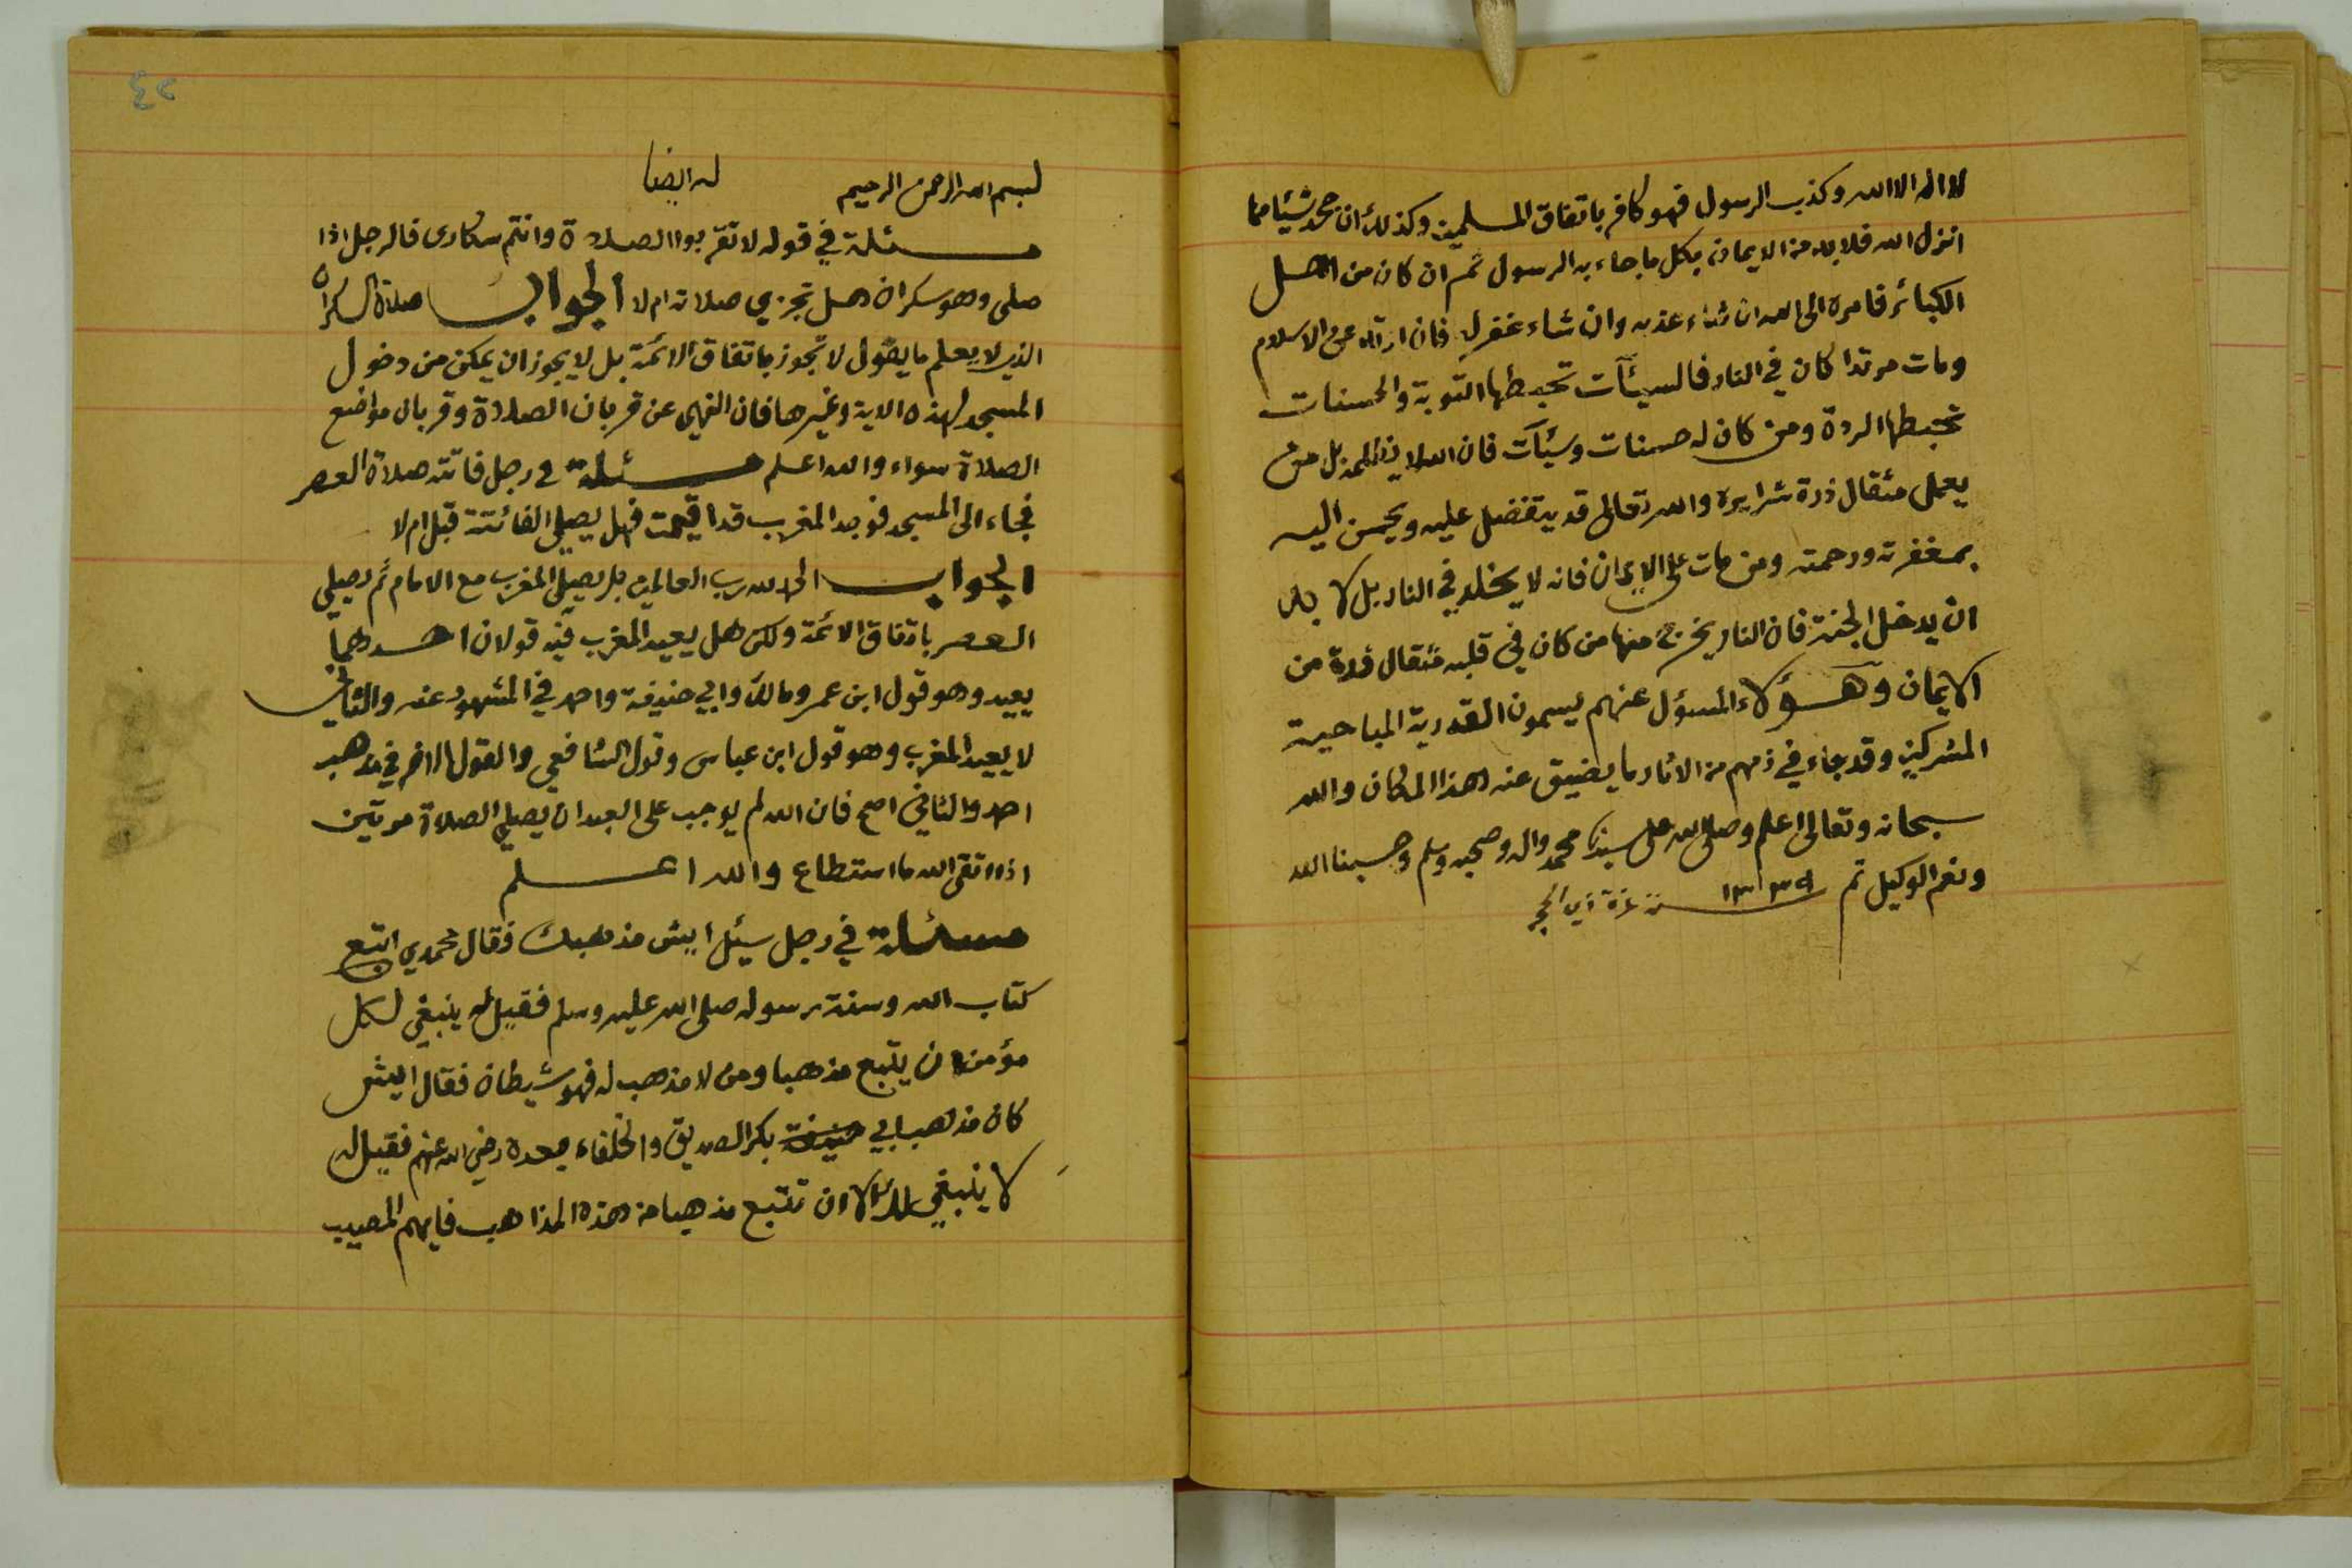 لا اله الا الله وكذب الرسول فهو كافر باتفاق المسلمين وكذلك ان جحد شيئا مما
انزل الله فلا بد من الايمان بكل ما جاء به الرسول ثم ان كان من اهل
الكبائر فامره الى الله ان شاء عذبه وان شاء غفر له فان ارتد عن الاسلام
ومات مرتدا كان في النار فالسيئآت تحبطها التوبة والحسنات
تحبطها الردة ومن كان له حسنات وسيئآت فان الله لا يظلمه بل من
يعمل مثقال ذرة شرا يره والله تعالى قد يتفضل عليه ويحسن اليه
بمغفرته ورحمته ومن مات على الايمان فانه لا يخلد في النار بل لا بد
ان يدخل الجنة فان النار يخرج منها من كان في قلبه مثقال ذرة من
الايمان وهؤلاء المسؤل عنهم يسمون القدرية المباحية
المشركين وقد جاء في ذمهم من الاثار ما يضيق عنه هذا المكان والله
سبحانه وتعالى اعلم وصلى الله على سيدنا محمد واله وصحبه وسلم وحسبنا الله
ونعم الوكيل تم سنة غرة ذي الحجر
٤٢
بسم الله الرحمن الرحيم له ايضا
مسئلة في قوله لا تقربوا الصلاة وانتم سكارى فالرجل اذا
صلى وهو سكران هل تجزي صلاته ام لا الجواب صلاة السكران
الذي لا يعلم ما يقول لا تجوز باتفاق الائمة بل لا يجوز ان يمكن من دخول
المسجد لهذه الاية وغيرها فان النهي عن قربان الصلاة وقربان مواضع
الصلاة سواء والله اعلم مسئلة في رجل فاتته صلاة العصر
فجاء الى المسجد فوجد المغرب قد اقيمت فهل يصلي الفائتة قبل ام لا
الجواب الحمد لله رب العالمين بل يصلي المغرب مع الامام ثم يصلي
العصر باتفاق الائمة ولكن هل يعيد المغرب فيه قولان احدهما
يعيد وهو قول ابن عمر ومالك وابي حنيفة واحمد في المشهور عنه والثاني
لا يعيد المغرب وهو قول ابن عباس وقول الشافعي والقول الاخر في مذهب
احمد والثاني اصح فان الله لم يوجب على العبد ان يصلي الصلاة مرتين
اذا اتقى الله ما استطاع والله اعلم
مسئلة في رجل سئل ايش مذهبك فقال محمدي اتبع
كتاب الله وسنة رسوله صلى الله عليه وسلم فقيل له ينبغي لكل
مؤمن ان يتبع مذهبا ومن لا مذهب له فهو شيطان فقال ايش
كان مذهب ابي حنيفة بكر الصديق والخلفاء بعده رضي الله عنهم فقيل له
لا ينبغي لك الا ان تتبع مذهبا من هذه المذاهب فايهم المصيب